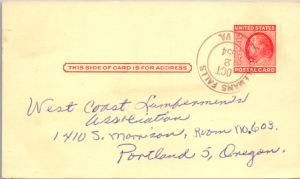 UNITED STATES
POSTAL CARD
OCT
2
WA.
THIS SIDE OF CARD IS FOR ADDRESS
West Coast Lumbermen's
Association
1410 S. Morrison, Room No. 603.
Portland 5, Oregon.